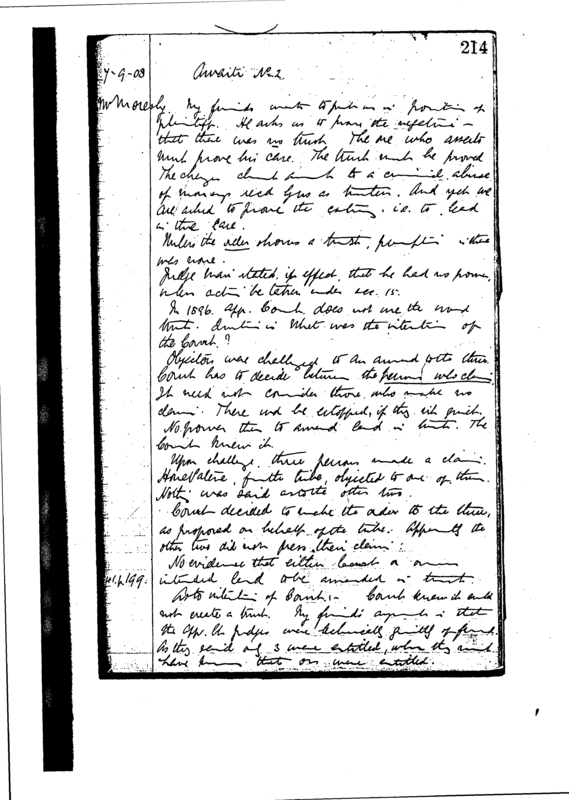 214
7-9-03 Awaiti No 2
Mr Moresby. My friends wants to put us in position of
plaintiff. He asks us to prove the negative -
that there was no trust. The one who asserts
must prove his case. The trust must be proved
The charges almost amounts to a criminal abuse
of moneys recd by us as trustees. And yet we
are asked to prove the . i.e. to lead
in this case.
Unless the order shows a trust, presumption is there
was none.
Judge Mair stated, in effect, that he had no power,
unless action be taken under sec. 15.
In 1896 App. Court does not use the word
trust. Question is What was the intention of
the Court?
Objectors were challenged to an award to the three
Court has to decide between the persons who claim
It need not consider those who make no
claim. There wd be estopped, if they sit quiet.
No power then to award land in trust. The
Court knew it.
Upon challenge, three persons made a claim.
Hone Patene, for the tribe, objected to one of them.
Nothing was said as to the other two.
Court decided to make the order to the three,
as proposed on behalf of the tribe. Apparently the
other two did not press their claim.
No evidence that either Court or
41.L.199. intended land to be awarded in trust
As to intention of Court:- Court knew it could
not create a trust. My friend's argument is that
the App. Ct judges were technically guilty of fraud.
As they said only 3 were entitled, when they must
have known that ors were entitled.